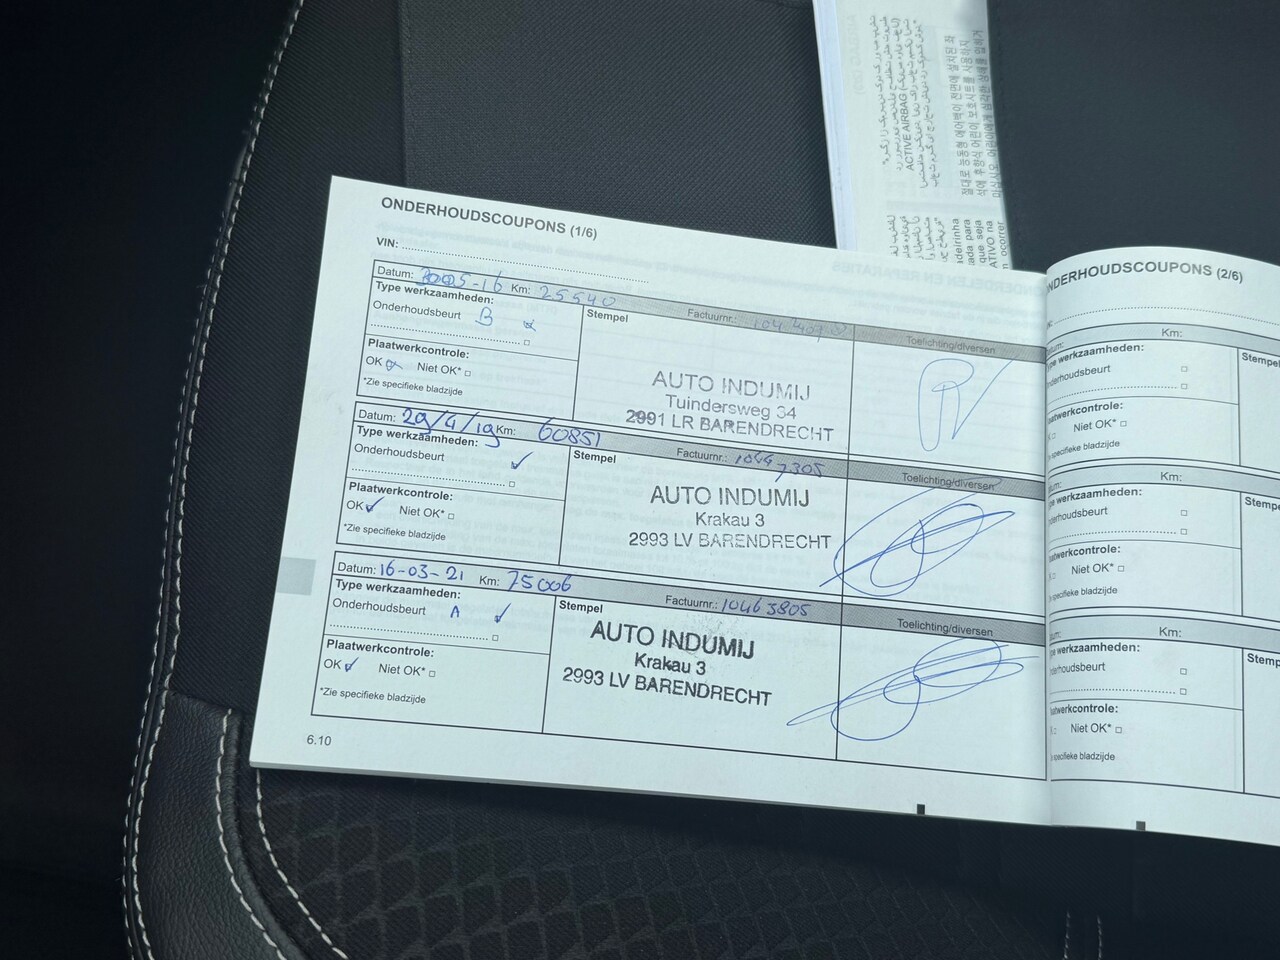 ONDERHOUDSCOUPONS (1/6)
VIN:
Datum: Km: 25540 Factuurnr.:
Type werkzaamheden: Stempel Toelichting/diversen
Onderhoudsbeurt B
Plaatwerkcontrole:
OK Niet OK*
*Zie specifieke bladzijde
AUTO INDUMIJ
Tuindersweg 34
2991 LR BARENDRECHT
Datum: 29/4/19 Km: 60851 Factuurnr.: 10447305
Type werkzaamheden: Stempel Toelichting/diversen
Onderhoudsbeurt ✓
Plaatwerkcontrole:
OK ✓ Niet OK*
*Zie specifieke bladzijde
AUTO INDUMIJ
Krakau 3
2993 LV BARENDRECHT
Datum: 16-03-21 Km: 75006 Factuurnr.: 10463805
Type werkzaamheden: Stempel Toelichting/diversen
Onderhoudsbeurt A ✓
Plaatwerkcontrole:
OK ✓ Niet OK*
*Zie specifieke bladzijde
AUTO INDUMIJ
Krakau 3
2993 LV BARENDRECHT
6.10
NDERHOUDSCOUPONS (2/6)
Km:
werkzaamheden: Stempel
nderhoudsbeurt
laatwerkcontrole:
Niet OK*
specifieke bladzijde
Km:
werkzaamheden: Stempe
nderhoudsbeurt
laatwerkcontrole:
Niet OK*
specifieke bladzijde
Km:
werkzaamheden: Stemp
nderhoudsbeurt
laatwerkcontrole:
Niet OK*
specifieke bladzijde
ACTIVE AIRBAG